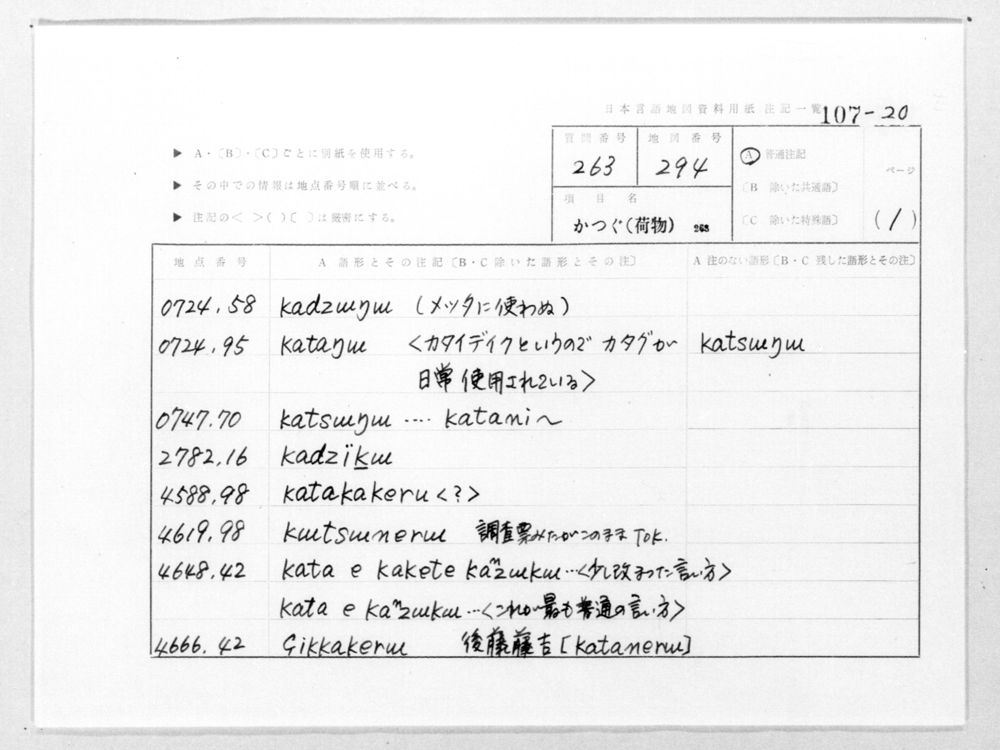 日本言語地図資料用紙 注記一覧 107-20
▶ A・〔B〕・〔C〕ごとに別紙を使用する。
▶ その中での情報は地点番号順に並べる。
▶ 注記の< >( )〔 〕は厳密にする。
質問番号 地図番号
263 294
項目名
かつぐ(荷物) 263
A 普通注記
〔B 除いた共通語〕
〔C 除いた特殊語〕
ページ
(1)
地点番号 A 語形とその注記〔B・C除いた語形とその注〕 A 注のない語形〔B・C 残した語形とその注〕
0724.58 kadzɯŋɯ (メッタに使わぬ)
0724.95 kataŋɯ <カタイデイクというのでカタグが katsɯŋɯ
日常使用されている>
0747.70 katsɯŋɯ ···· katani~
2782.16 kadzïkɯ
4588.98 katakakeru<?>
4619.98 kɯtsɯnerɯ 調査票みたがこのまま TOK.
4648.42 kata e kakete kaⁿzɯkɯ…<少し改まった言い方>
kata e kaⁿzɯkɯ…<これが最も普通の言い方>
4666.42 Gikkakerɯ 後藤藤吉[katanerɯ]